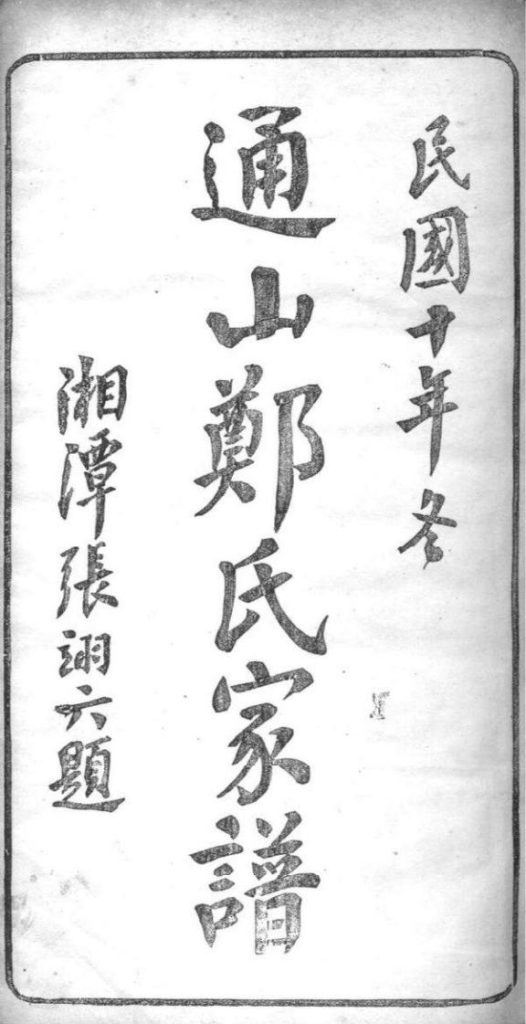 民國十年冬
通山鄭氏家譜
湘潭張翊六題